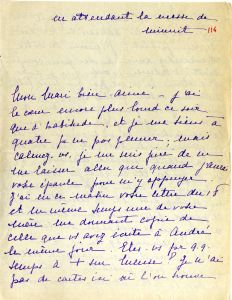 en attendant la messe de
minuit
116
Mon Mari bien aimé - j'ai
le cœur encore plus lourd ce soir
que d'habitude, et je me tiens à
quatre pr ne pas pleurer; mais
calmez vs, je me suis juré de ne
me laisser aller que quand j'aurai
votre épaule pour m'y appuyer
J'ai eu ce matin votre lettre du 18
et en même temps une de votre
Mère me donnant copie de
celle que vs avez écrite à André
le même jour Etes-vs pr q.q.
temps à + sur Meuse? Je n'ai
pas de cartes ici où l'on trouve